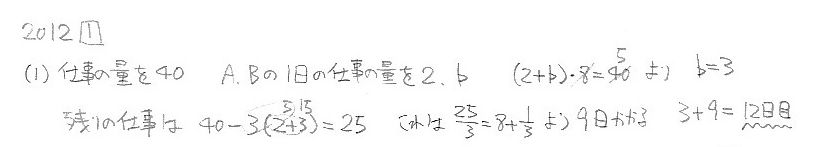 2012 1
(1) 仕事の量を40 A.Bの1日の仕事の量を2、b (2+b)・8=40 5 より b=3
残りの仕事は 40-3(2+3)=25 5 15 これは 25/3=8+1/3より9日かかる 3+9=12日目